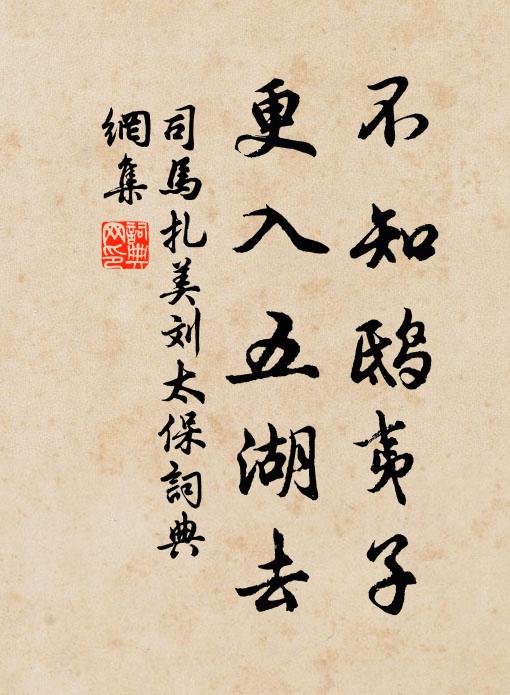 不知鴟夷子
更入五湖去
司馬扎美刘太保詞典
網集
詞典
网印